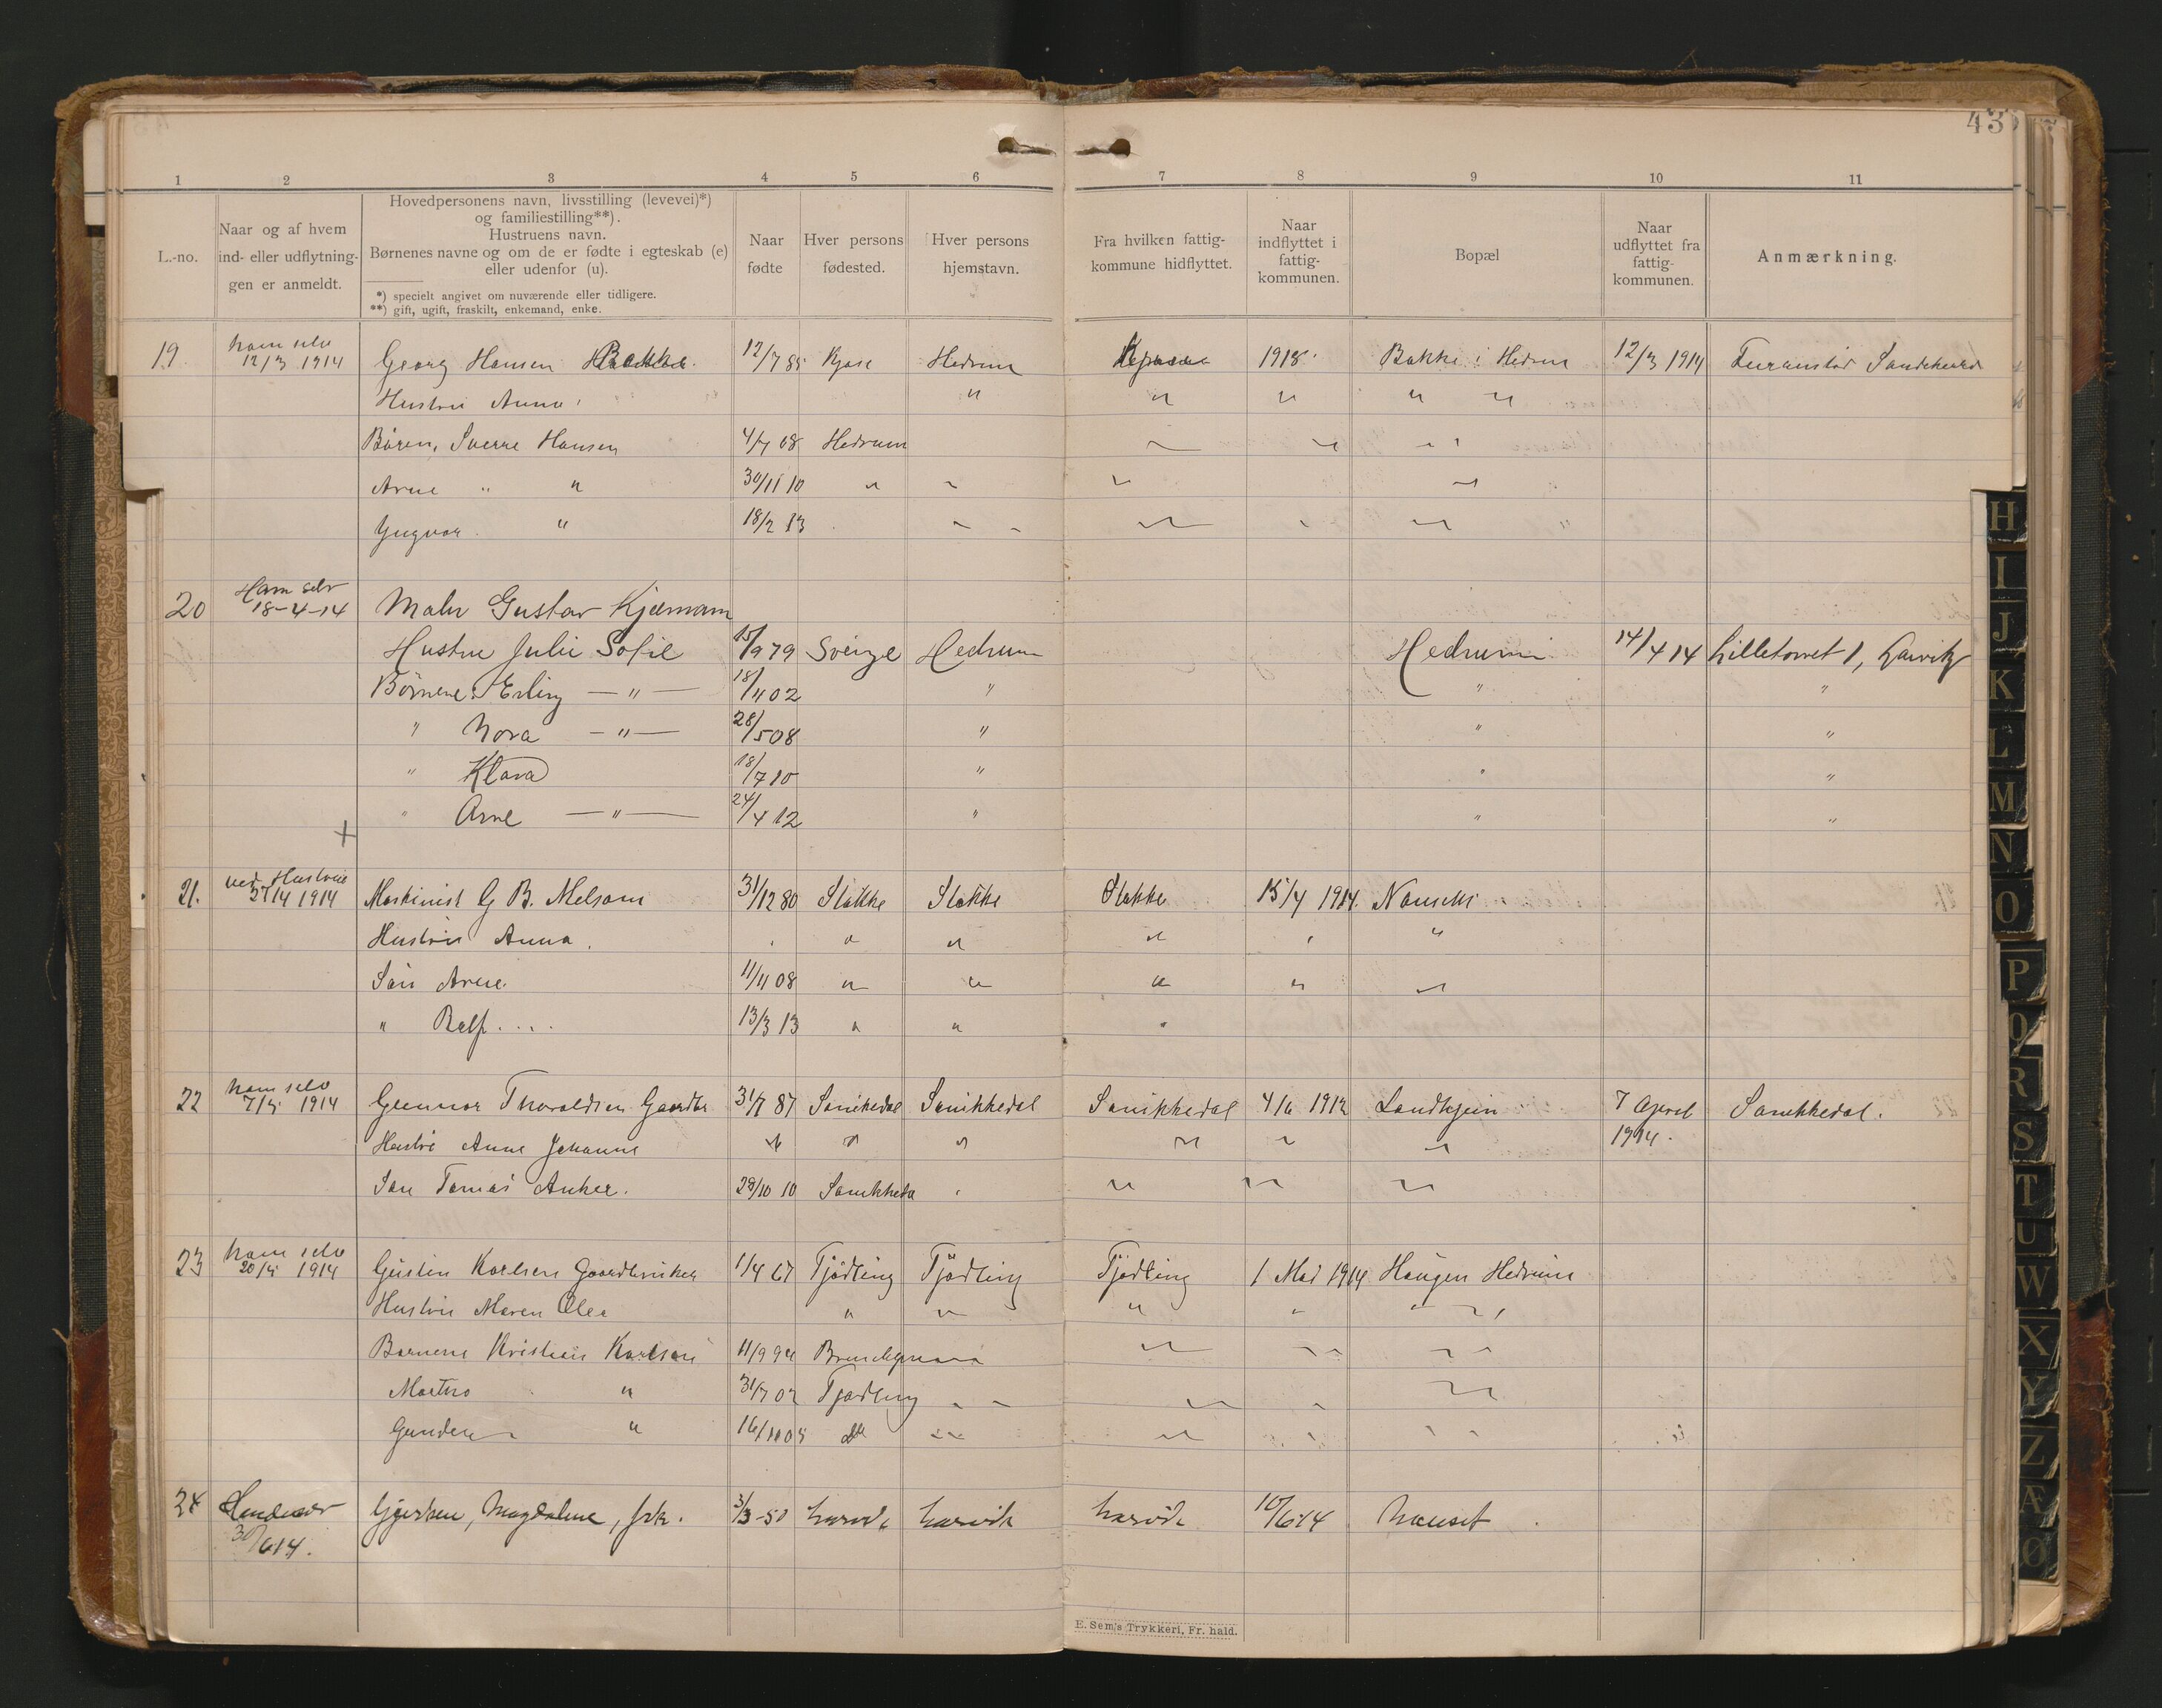 43
1 2 3 4 5 6 7 8 9 10 11
L.-no.
Naar og af hvem
ind- eller udflytnin-
gen er anmeldt.
Hovedpersonens navn, livsstilling (levevei)*)
og familiestilling**).
Hustruens navn.
Børnenes navne og om de er fødte i egteskab (e)
eller udenfor (u).
*) specielt angivet om nuværende eller tidligere.
**) gift, ugift, fraskilt, enkemand, enke.
Naar
fødte
Hver persons
fødested.
Hver persons
hjemstavn.
Fra hvilken fattig-
kommune hidflyttet.
Naar
indflyttet i
fattig-
kommunen.
Bopæl
Naar
udflyttet fra
fattig-
kommunen.
Anmærkning.
19. ham selv 12/3 1914 Georg Hansen Bakke. 12/7 85 Kjose Hedrum 1918. Bakke i Hedrum 12/3 1914
Hustru Anna " " " " "
Børen, Sverre Hansen 4/7 08 Hedrum
Arne " " 30/11 10 "
Yngvar. " 18/2 13
20 Ham selv 18-4-14 Maler Gustav Kjemam
Hustru Julie Sofie 15/9 79 Sverige Hedrum Hedrum 14/4 14 Lilletorvet 1, Larvik
Børnene: Erling — " — 18/11 02 " " "
" Nora — " — 28/5 08 " " "
" Klara 18/7 10 " " "
" Arne — " — 24/4 12 " " "
+
21. ved Hustruen 27/4 1914 Maskinist G B. Melsom 31/12 80 Stokke Stokke Stokke 15/4 1914. Nanseth
Hustru Anna. " " " " "
Søn Arne. 11/11 08 " " " " "
" Ralf.... 13/3 13 " " "
22 ham selv 7/5 1914 Gunnar Thoraldsen Gaardbr 31/7 87 Sanikedal Sanikkedal Sanikkedal 4/6 1912 7 April 1914. Sanikkedal.
Hustru Anne Johanne " " " " " "
Søn Tomas Anker. 28/10 10 Sanikkeda " " "
23 ham selv 20/5 1914 Gusten Karlsen Gaardbruker 1/4 67 Tjødling Tjødling Tjødling 1 Mai 1914 Haugen Hedrum
Hustru Maren Olea " " " " "
Barnene Kristian Karlsen 11/9 94 " " "
" 31/7 02 Tjødling " " "
" 16/10 05 do " " "
24 Hendeselv 30/6 14. Magdalene, frk. 3/3-50 Larvik Larvik Larvik 10/6 14 Nanset
E. Sem's Trykkeri, Fr. hald.
H
I
J
K
L
M
N
O
P
Q
R
S
T
U
W
X
Y
Z
Æ
Ø